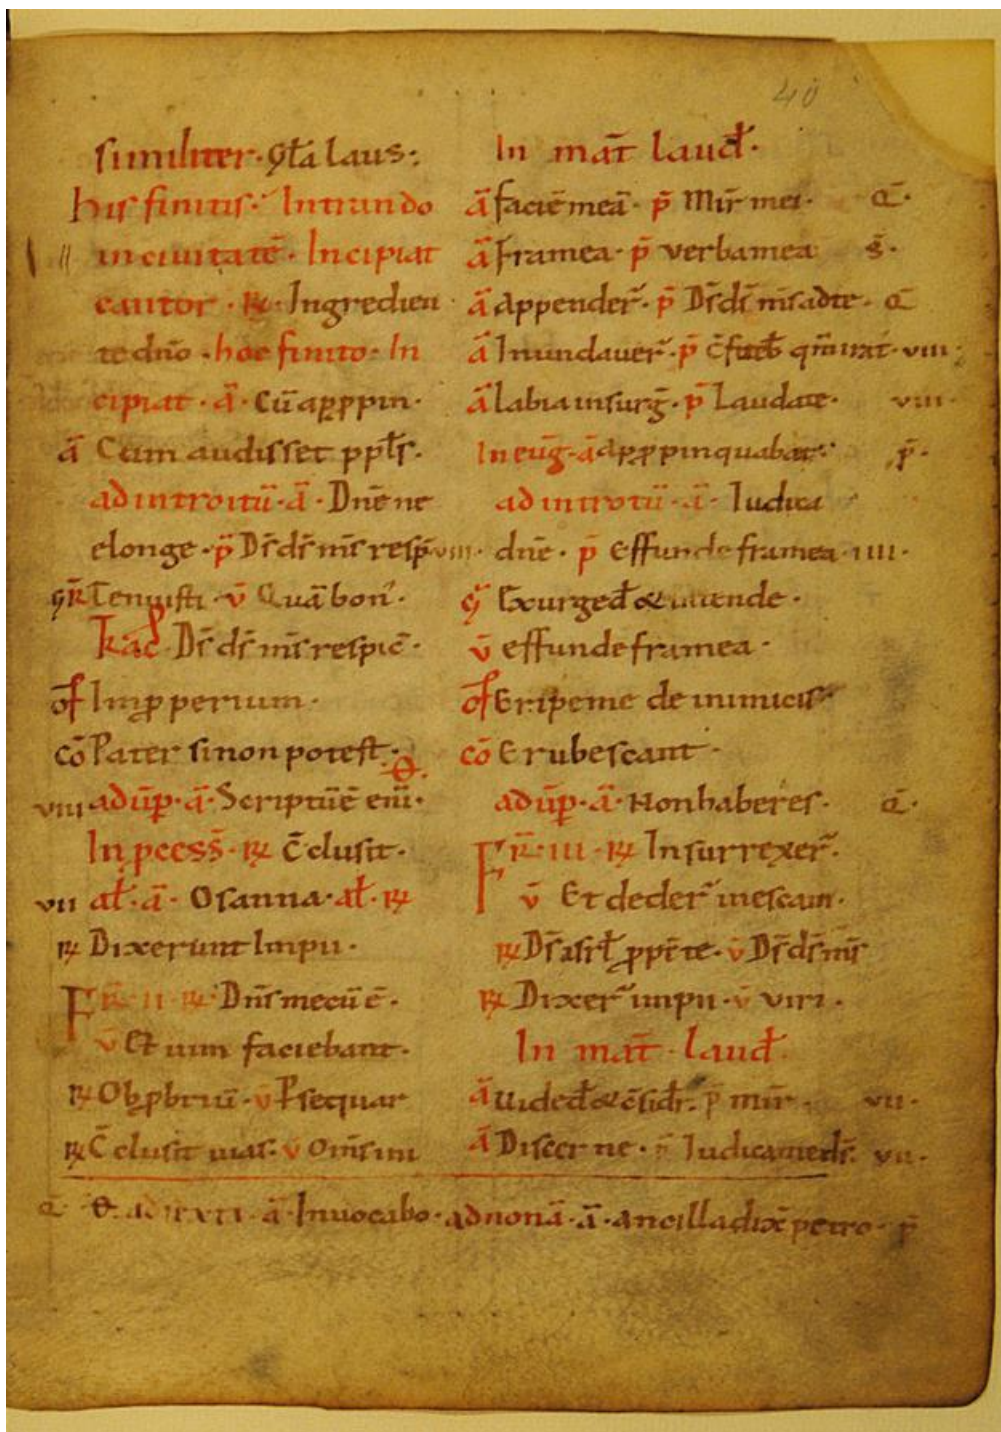 40
similiter · Gła laus :
his finitis · Intrando
in ciuitatē · Incipiat
cantor · R̷ · Ingredien
te dn̄o · hoc finito · In
cipiat · ā · Cū app̱pin ·
ā Cum audisset ppl̄s ·
ad introitū · ā · Dn̄e ne
elonge · p̄ Dn̄s ds̄ ms̄ resp̄ viii ·
gr̄ Tenuisti · v̄ Quā bon ·
Dn̄s ds̄ ms̄ respic̄ ·
of̄ Imp̱perium ·
cō Pater si non potest ·
viii ad ūp̱ · ā · Scriptū ē eni ·
In p̱cess̄ · R̷ C̄clusit ·
vii al̄ · ā · Osanna · al̄ · R̷
R̷ Dixerunt Impii ·
Fr̄ · ii · R̷ · Dn̄s mecū ē ·
v̄ Et uim faciebant ·
R̷ Obp̱briū · v̄ P̱sequar
R̷ C̄clusit uias · v̄ Om̄s ini
In māt laud̄ ·
ā faciē meā · p̄ Mis̄r mei · Q̄ ·
ā framea · p̄ verba mea s̄ ·
ā Appender̄ · p̄ Ds̄ ds̄ ms̄ ad te · Q̄
ā Inundauer̄ · p̄ viii ·
ā labia insurḡ · p̄ Laudate · viii ·
In eūg · ā App̱pinquabat · p̄ ·
ad introitū · ā · Iudica
dn̄e · p̄ effunde framea · iiii ·
Exurge d̄ & intende ·
v̄ effunde framea ·
of̄ Eripe me de inimicis
cō Erubescant ·
ad ūp̱ · ā · Non haberes · Q̄ ·
Fr̄ · iii · R̷ Insurrexer̄ ·
v̄ Et deder̄ in escam ·
R̷ Ds̄ isrl̄ p̱pt̄ te · v̄ Ds̄ ds̄ ms̄
R̷ Dixer̄ impii · v̄ viri ·
In māt · laud̄
ā Uide d̄ & c̄sid̄r · p̄ mis̄r · vii ·
ā Discerne · p̄ Iudica me ds̄ · vii ·
ā · Inuocabo · ad nonā · ā · ancilla dix̄ petro · p̄